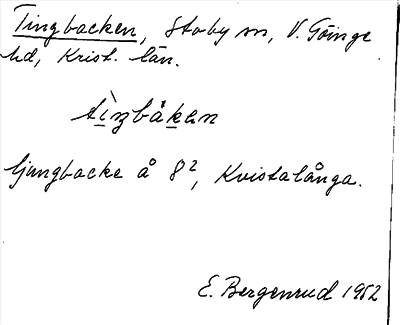 Tingbacken, Stoby sn, V. Göinge
hd, Krist. län.
tìngbåkan
ljungbacke å 8², Kvistalånga.
E. Bergenrud 1952